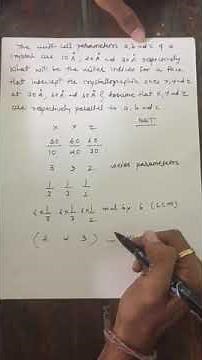 The unit-cell parameters a, b and c of a
crystal are 10 Å, 20 Å and 30 Å respectively
What will be the miller indices for a face
that intercept the crystallographic axes x, y and z
at 30 Å, 60 Å and 60 Å? Assume that x, y and z
are respectively parallel to a, b and c.
NET
x y z
30/10 60/20 60/30
3 3 2
1/3 1/3 1/2
6x1/3 6x1/3 6x1/2 mul by 6 (LCM)
(2 2 3)